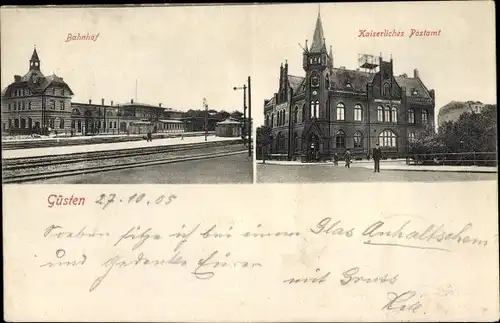 Bahnhof
Kaiserliches Postamt
Güsten 27.10.05
Soeben sitze ich bei einem Glas Anhaltschem
und gedenke Eurer
mit Gruss